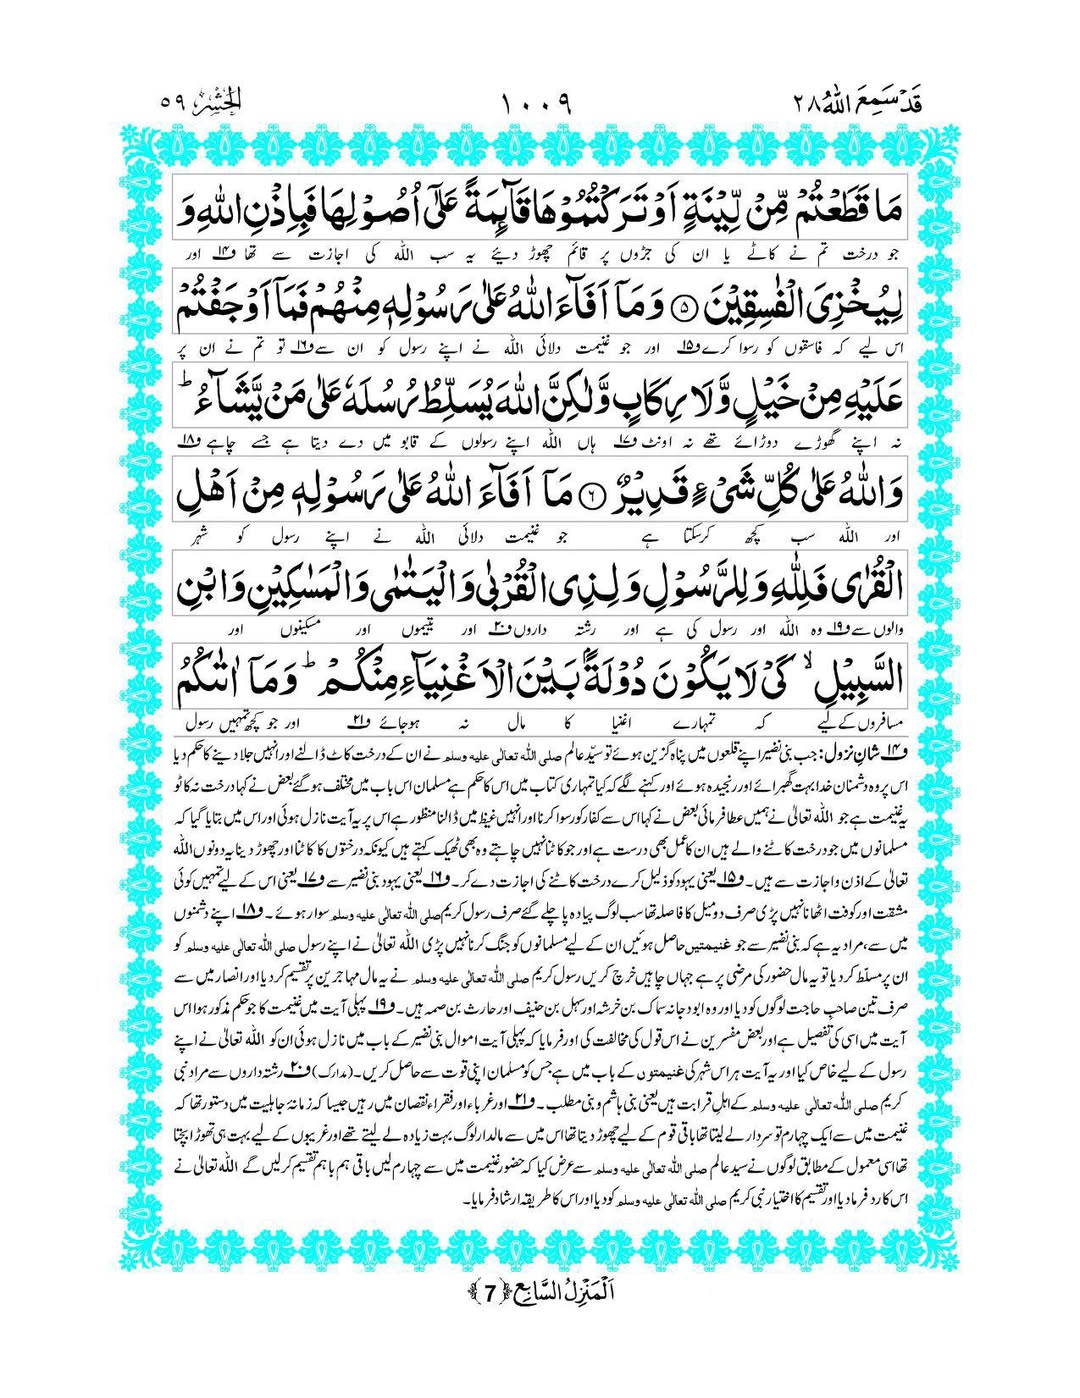 قَدْ سَمِعَ اللهُ ٢٨
١٠٠٩
الْحَشْر ٥٩
مَا قَطَعْتُمْ مِّنْ لِّيْنَةٍ اَوْ تَرَكْتُمُوْهَا قَآىِٕمَةً عَلٰۤى اُصُوْلِهَا فَبِاِذْنِ اللّٰهِ وَ
جو درخت تم نے کاٹے یا ان کی جڑوں پر قائم چھوڑ دیئے یہ سب اللہ کی اجازت سے تھا ف۱۴ اور
لِیُخْزِیَ الْفٰسِقِیْنَ ۝۵ وَ مَاۤ اَفَآءَ اللّٰهُ عَلٰى رَسُوْلِهٖ مِنْهُمْ فَمَاۤ اَوْجَفْتُمْ
اس لیے کہ فاسقوں کو رسوا کرے ف۱۵ اور جو غنیمت دلائی اللہ نے اپنے رسول کو ان سے ف۱۶ تو تم نے ان پر
عَلَیْهِ مِنْ خَیْلٍ وَّ لَا رِكَابٍ وَّ لٰكِنَّ اللّٰهَ یُسَلِّطُ رُسُلَهٗ عَلٰى مَنْ یَّشَآءُ ؕ
نہ اپنے گھوڑے دوڑائے تھے نہ اونٹ ف۱۷ ہاں اللہ اپنے رسولوں کے قابو میں دے دیتا ہے جسے چاہے ف۱۸
وَ اللّٰهُ عَلٰى كُلِّ شَیْءٍ قَدِیْرٌ ۝۶ مَاۤ اَفَآءَ اللّٰهُ عَلٰى رَسُوْلِهٖ مِنْ اَهْلِ
اور اللہ سب کچھ کرسکتا ہے جو غنیمت دلائی اللہ نے اپنے رسول کو شہر
الْقُرٰى فَلِلّٰهِ وَ لِلرَّسُوْلِ وَ لِذِی الْقُرْبٰى وَ الْیَتٰمٰى وَ الْمَسٰكِیْنِ وَ ابْنِ
والوں سے ف۱۹ وہ اللہ اور رسول کی ہے اور رشتہ داروں ف۲۰ اور یتیموں اور مسکینوں اور
السَّبِیْلِ ۙ كَیْ لَا یَكُوْنَ دُوْلَةًۢ بَیْنَ الْاَغْنِیَآءِ مِنْكُمْ ؕ وَ مَاۤ اٰتٰىكُمُ
مسافروں کے لیے کہ تمہارے اغنیا کا مال نہ ہوجائے ف۲۱ اور جو کچھ تمہیں رسول
ف۱۴ شانِ نزول: جب بنی نضیر اپنے قلعوں میں پناہ گزین ہوئے تو سیّد عالم صلی اللہ تعالٰی علیہ وسلم نے ان کے درخت کاٹ ڈالنے اور انہیں جلا دینے کا حکم دیا
اس پر وہ دشمنان خدا بہت گھبرائے اور رنجیدہ ہوئے اور کہنے لگے کہ کیا تمہاری کتاب میں اس کا حکم ہے مسلمان اس باب میں مختلف ہوگئے بعض نے کہا درخت نہ کاٹو
یہ غنیمت ہے جو اللہ تعالٰی نے ہمیں عطا فرمائی بعض نے کہا اس سے کفار کو رسوا کرنا اور انہیں غیظ میں ڈالنا منظور ہے اس پر یہ آیت نازل ہوئی اور اس میں بتایا گیا کہ
مسلمانوں میں جو درخت کاٹنے والے ہیں ان کا عمل بھی درست ہے اور جو کاٹنا نہیں چاہتے وہ بھی ٹھیک کہتے ہیں کیونکہ درختوں کا کاٹنا اور چھوڑ دینا یہ دونوں اللہ
تعالٰی کے اذن و اجازت سے ہیں۔ ف۱۵ یعنی یہود کو ذلیل کرے درخت کاٹنے کی اجازت دے کر۔ ف۱۶ یعنی یہود بنی نضیر سے ف۱۷ یعنی اس کے لیے تمہیں کوئی
مشقت اور کوفت اٹھانا نہیں پڑی صرف دو میل کا فاصلہ تھا سب لوگ پیادہ پا چلے گئے صرف رسول کریم صلی اللہ تعالٰی علیہ وسلم سوار ہوئے۔ ف۱۸ اپنے دشمنوں
میں سے، مراد یہ ہے کہ بنی نضیر سے جو غنیمتیں حاصل ہوئیں ان کے لیے مسلمانوں کو جنگ کرنا نہیں پڑی اللہ تعالٰی نے اپنے رسول صلی اللہ تعالٰی علیہ وسلم کو
ان پر مسلّط کر دیا تو یہ مال حضور کی مرضی پر ہے جہاں چاہیں خرچ کریں رسول کریم صلی اللہ تعالٰی علیہ وسلم نے یہ مال مہاجرین پر تقسیم کر دیا اور انصار میں سے
صرف تین صاحبِ حاجت لوگوں کو دیا اور وہ ابو دجانہ سماک بن خرشہ اور سہل بن حنیف اور حارث بن صمہ ہیں۔ ف۱۹ پہلی آیت میں غنیمت کا جو حکم مذکور ہوا اس
آیت میں اسی کی تفصیل ہے اور بعض مفسرین نے اس قول کی مخالفت کی اور فرمایا کہ پہلی آیت اموال بنی نضیر کے باب میں نازل ہوئی ان کو اللہ تعالٰی نے اپنے
رسول کے لیے خاص کیا اور یہ آیت ہر اس شہر کی غنیمتوں کے باب میں ہے جس کو مسلمان اپنی قوت سے حاصل کریں۔ (مدارک) ف۲۰ رشتہ داروں سے مراد نبی
کریم صلی اللہ تعالٰی علیہ وسلم کے اہلِ قرابت ہیں یعنی بنی ہاشم و بنی مطلب۔ ف۲۱ اور غرباء اور فقراء نقصان میں رہیں جیسا کہ زمانۂ جاہلیت میں دستور تھا کہ
غنیمت میں سے ایک چہارم تو سردار لے لیتا تھا باقی قوم کے لیے چھوڑ دیتا تھا اس میں سے مالدار لوگ بہت زیادہ لے لیتے تھے اور غریبوں کے لیے بہت ہی تھوڑا بچتا
تھا اسی معمول کے مطابق لوگوں نے سید عالم صلی اللہ تعالٰی علیہ وسلم سے عرض کیا کہ حضور غنیمت میں سے چہارم لیں باقی ہم باہم تقسیم کرلیں گے اللہ تعالٰی نے
اس کا رد فرما دیا اور تقسیم کا اختیار نبی کریم صلی اللہ تعالٰی علیہ وسلم کو دیا اور اس کا طریقہ ارشاد فرمایا۔
اَلْمَنْزِلُ السَّابِع ﴿7﴾